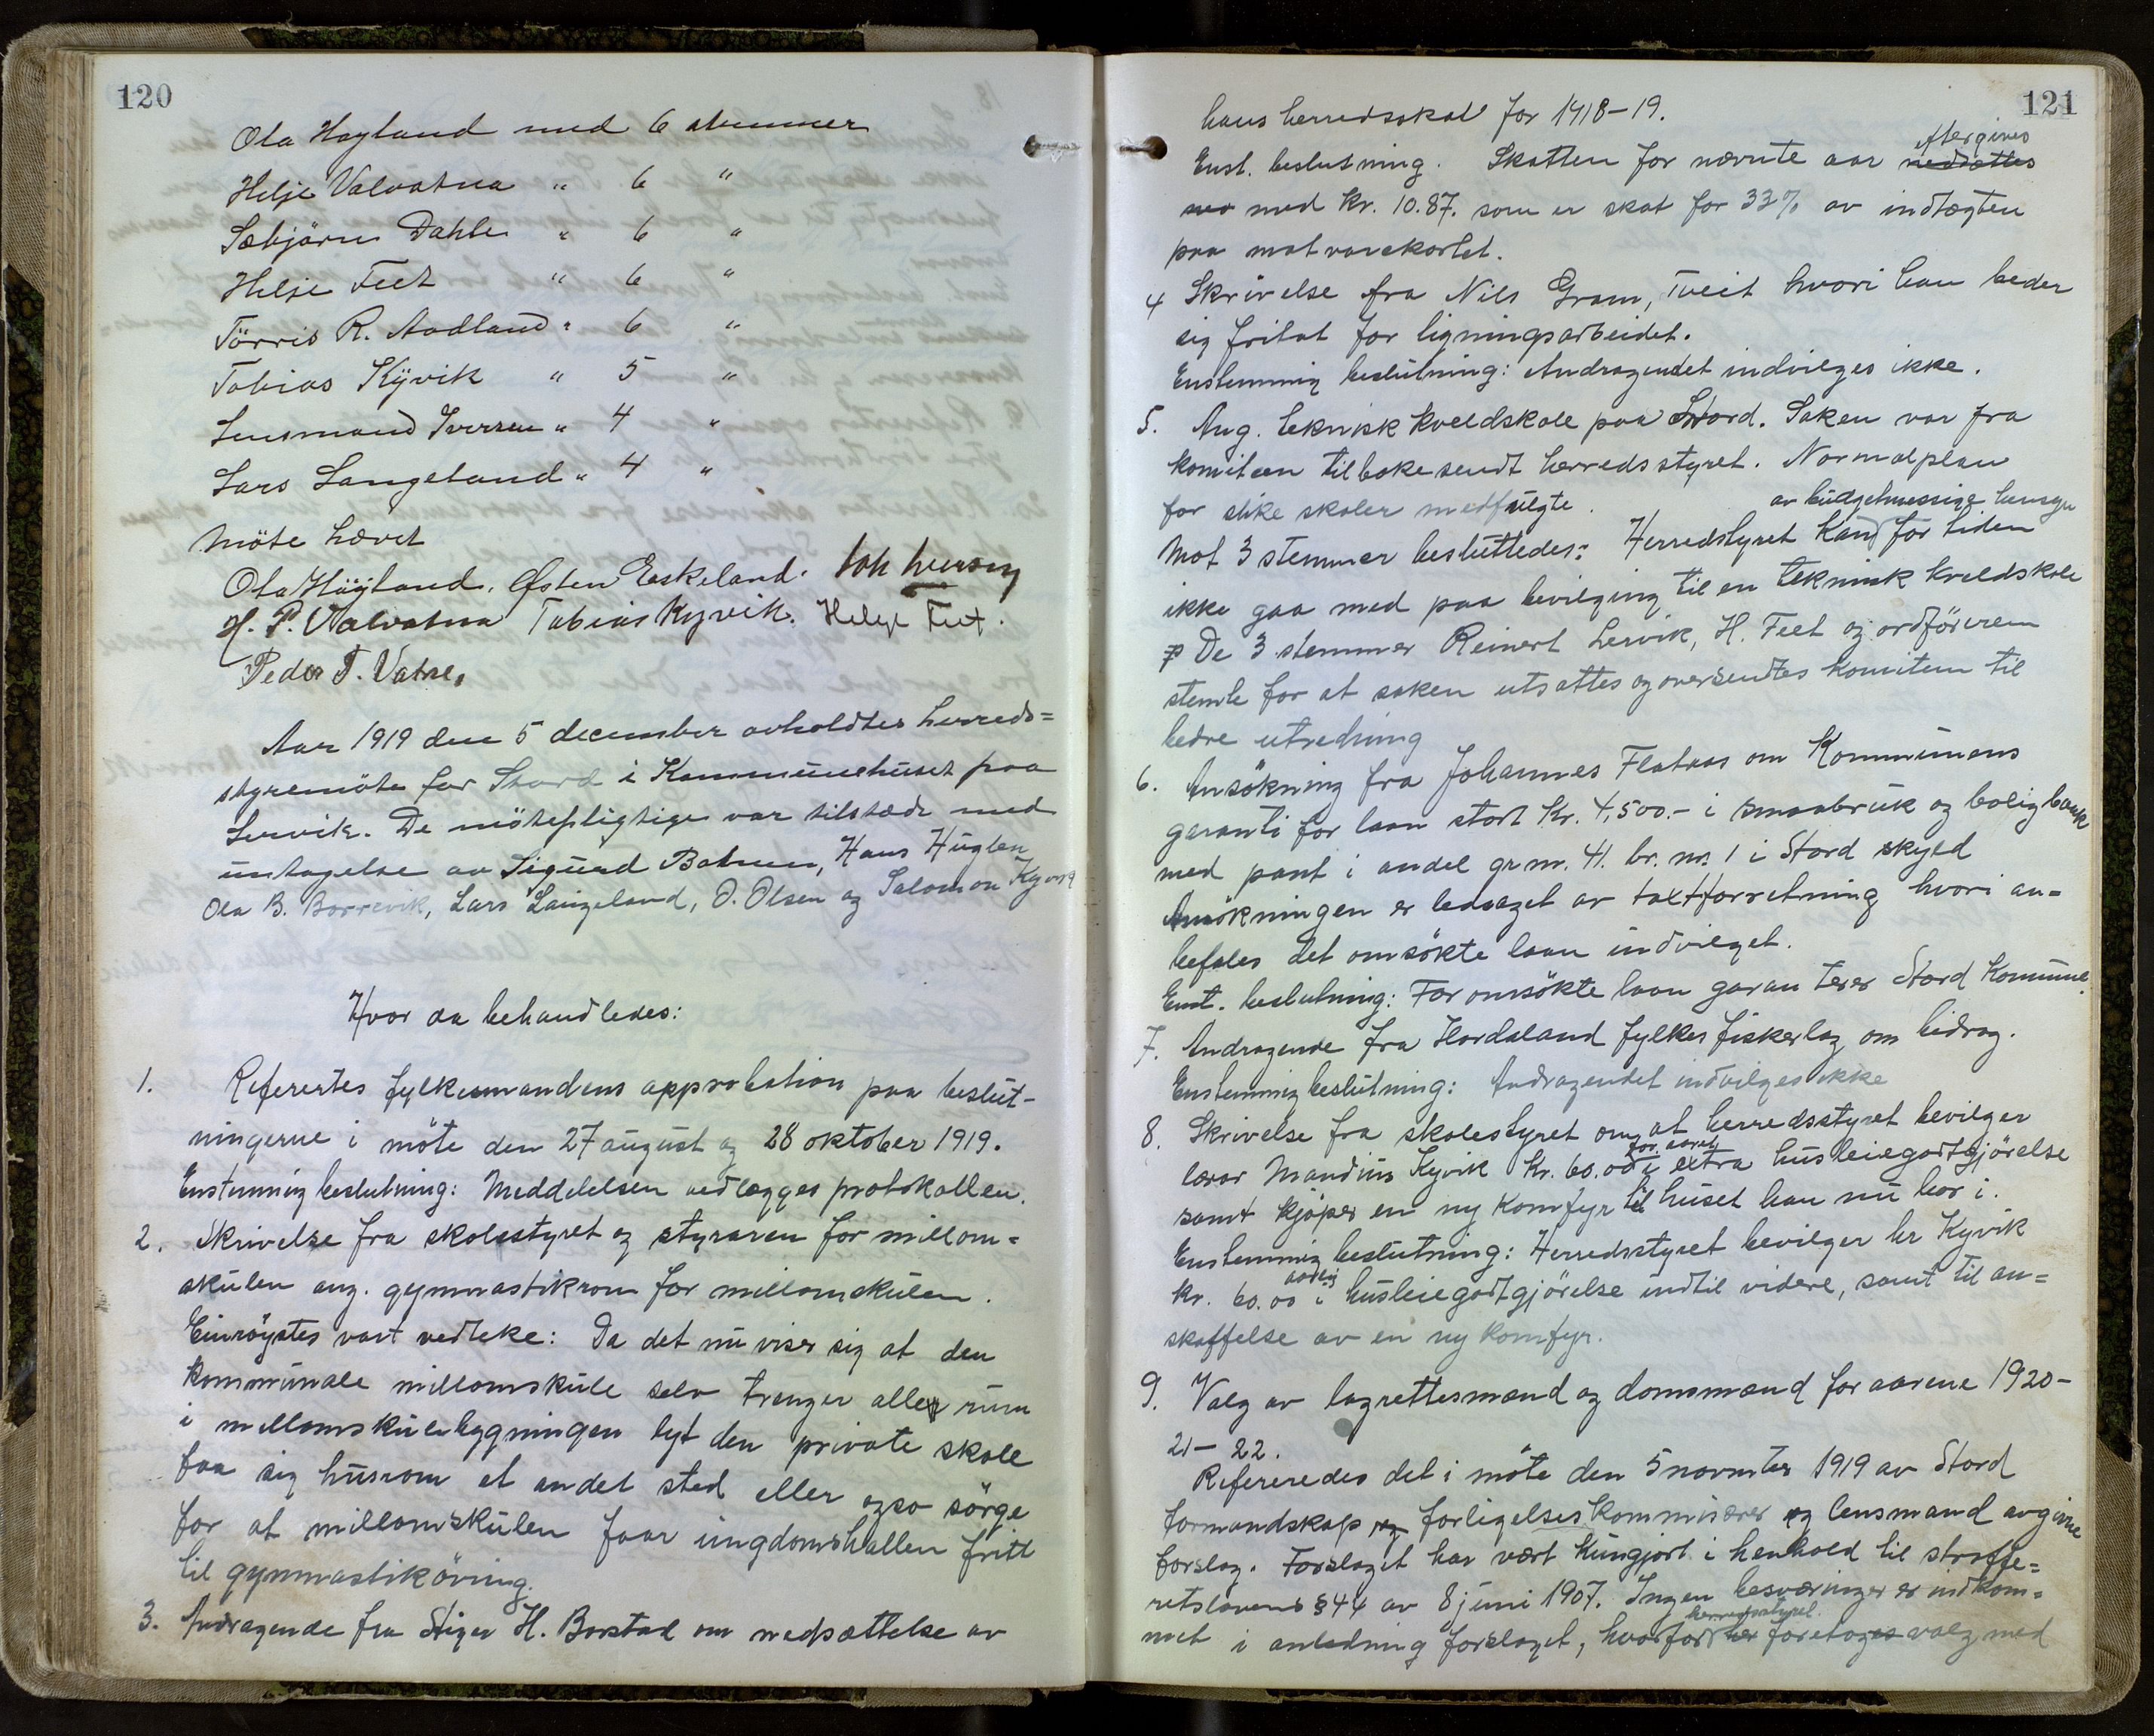 120
Ola Høyland med 6 stemmer
Helje Valvatna " 6 "
Sæbjörn Dahle " 6 "
Helje Feet " 6 "
Törris R. Aadland " 6 "
Tobias Kyvik " 5 "
Lensmand Iversen " 4 "
Lars Langeland " 4 "
Möte hævet
Ola Höyland. Østen Eskeland. Joh Iversen
H. P. Valvatna Tobias Kyvik. Helge Feet.
Peder T. Vatne.
Aar 1919 den 5 december avholdtes herreds=
styremöte for Stord i Kommunehuset paa
Lervik. De mötepligtige var tilstæde med
untagelse av Sigurd Batnun, Hans Huglen
Ola B. Borrevik, Lars Langeland, O. Olsen og Salomon Kyvik
Hvor da behandledes:
1. Referertes fylkesmandens approbation paa beslut-
ningerne i möte den 27 august og 28 oktober 1919.
Enstemmig beslutning: Meddelelsen vedlægges protokollen.
2. Skrivelse fra skolestyret og styraren for millom=
skulen ang. gymnastikrom for millomskulen.
Einröystes vart vedteke: Da det nu viser sig at den
kommunale millomskule selv trenger alle rum
i millomskulebygningen lyt den private skole
faa sig husrom et andet sted eller ogso sörge
for at millomskulen faar ungdomshallen fritt
til gymnastiköving.
3. Andragende fra Stiger H. Borstad om nedsættelse av
121
hans herredsskat for 1918-19.
Enst. beslutning. Skatten for nævnte aar nedsættes eftergives
med Kr. 10.87. som er skat for 33% av indtægten
paa matvarekortet.
4 Skrivelse fra Nils Gram, Tveit hvori han beder
sig fritat for ligningsarbeidet.
Enstemmig beslutning: Andragendet indvilges ikke.
5. Ang. teknisk kveldskole paa Stord. Saken var fra
komiteen tilbakesendt herredsstyret. Normalplan
for slike skoler medfulgte.
Mot 3 stemmer besluttedes: Herredstyret kan av budgetmessige hensyn for tiden
ikke gaa med paa bevilging til en teknisk kveldskole
De 3 stemmer Reinert Lervik, H. Feet og ordföreren
stemte for at saken utsattes og oversendtes komiteen til
bedre utredning
6. Ansökning fra Johannes Flataas om Kommunens
garanti for laan stort Kr. 4,500.- i smaabruk og boligbank
med pant i andel gr. nr. 41. br. nr. 1 i Stord skyld
Ansökningen er ledsaget av taxtforretning hvori an=
befales det omsökte laan indvilget.
Enst. beslutning: For omsökte laan garanterer Stord Kommune.
7. Andragende fra Hordaland fylkes fiskerlag om bidrag.
Enstemmig beslutning: Andragendet indvilges ikke
8. Skrivelse fra skolestyret om at herredsstyret bevilger
lærer Mandius Kyvik Kr. 60.00 for aaret i extra husleiegodtgjörelse
samt kjöper en ny komfyr til huset han nu bor i.
Enstemmig beslutning: Herredsstyret bevilger hr Kyvik
kr. 60.00 aarlig i husleiegodtgjörelse indtil videre, samt til an=
skaffelse av en ny komfyr.
9. Valg av lagrettesmænd og domsmænd for aarene 1920-
21-22.
Refereredes det i möte den 5 novmber 1919 av Stord
formandskap og forligelseskommisærer og lensmand avgivne
forslag. Forslaget har vært kungjort i henhold til straffe=
retslovens §44 av 8 juni 1907. Ingen besværinger er indkom=
met i anledning forslaget, hvorfor herredsstyret foretages valg med